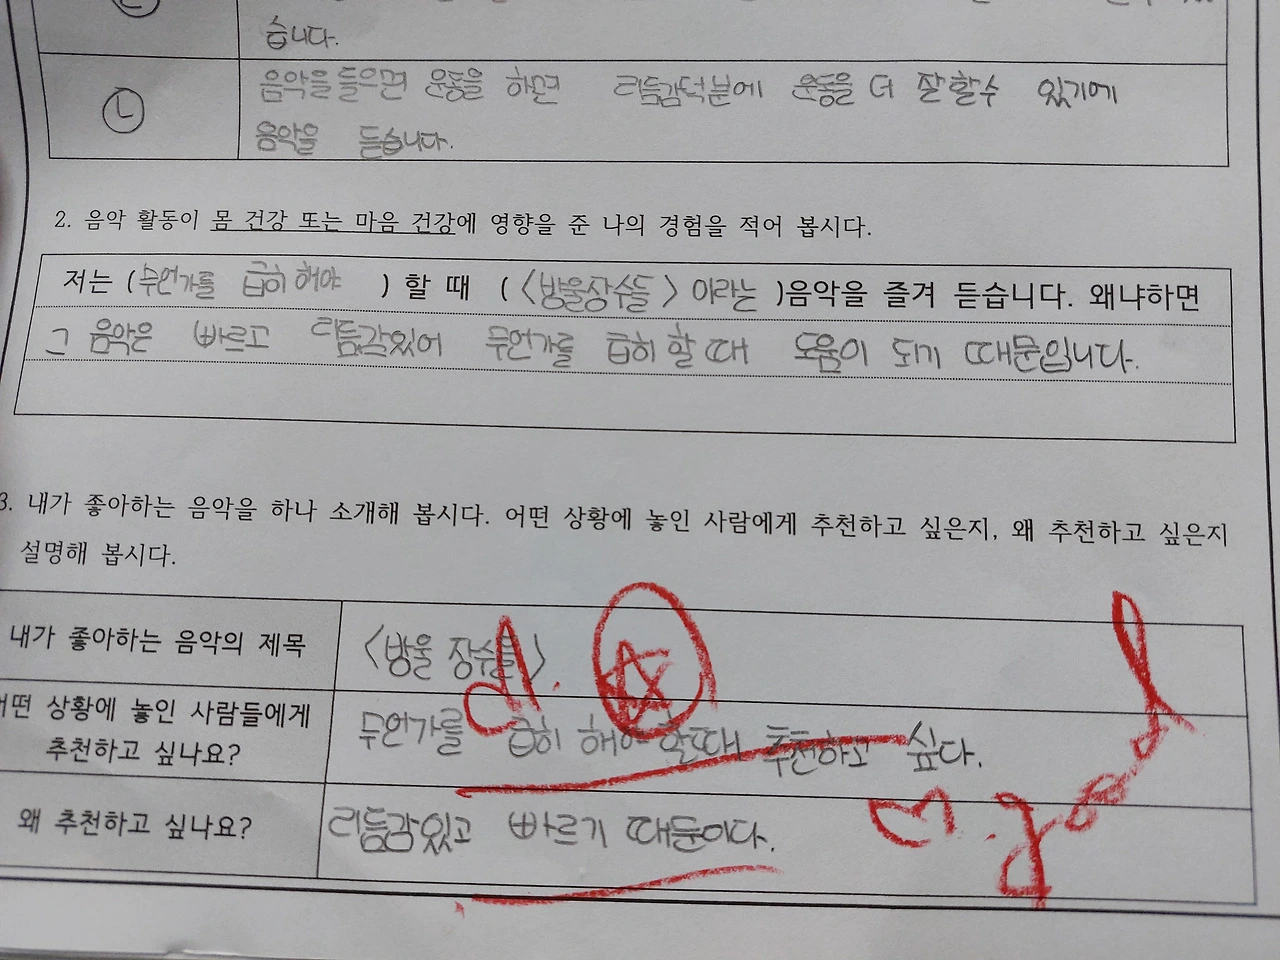 습니다.
ㄴ 음악을 들으면 운동을 하면 리듬감덕분에 운동을 더 잘할수 있기에
음악을 듣습니다.
2. 음악 활동이 몸 건강 또는 마음 건강에 영향을 준 나의 경험을 적어 봅시다.
저는 (무언가를 급히 해야 ) 할 때 (<방울장수들> 이라는 )음악을 즐겨 듣습니다. 왜냐하면
그 음악은 빠르고 리듬감있어 무언가를 급히 할 때 도움이 되기 때문입니다.
3. 내가 좋아하는 음악을 하나 소개해 봅시다. 어떤 상황에 놓인 사람에게 추천하고 싶은지, 왜 추천하고 싶은지
설명해 봅시다.
내가 좋아하는 음악의 제목 <방울 장수들>
어떤 상황에 놓인 사람들에게
추천하고 싶나요? 무언가를 급히 해야 할때 추천하고 싶다.
왜 추천하고 싶나요? 리듬감있고 빠르기 때문이다.
good